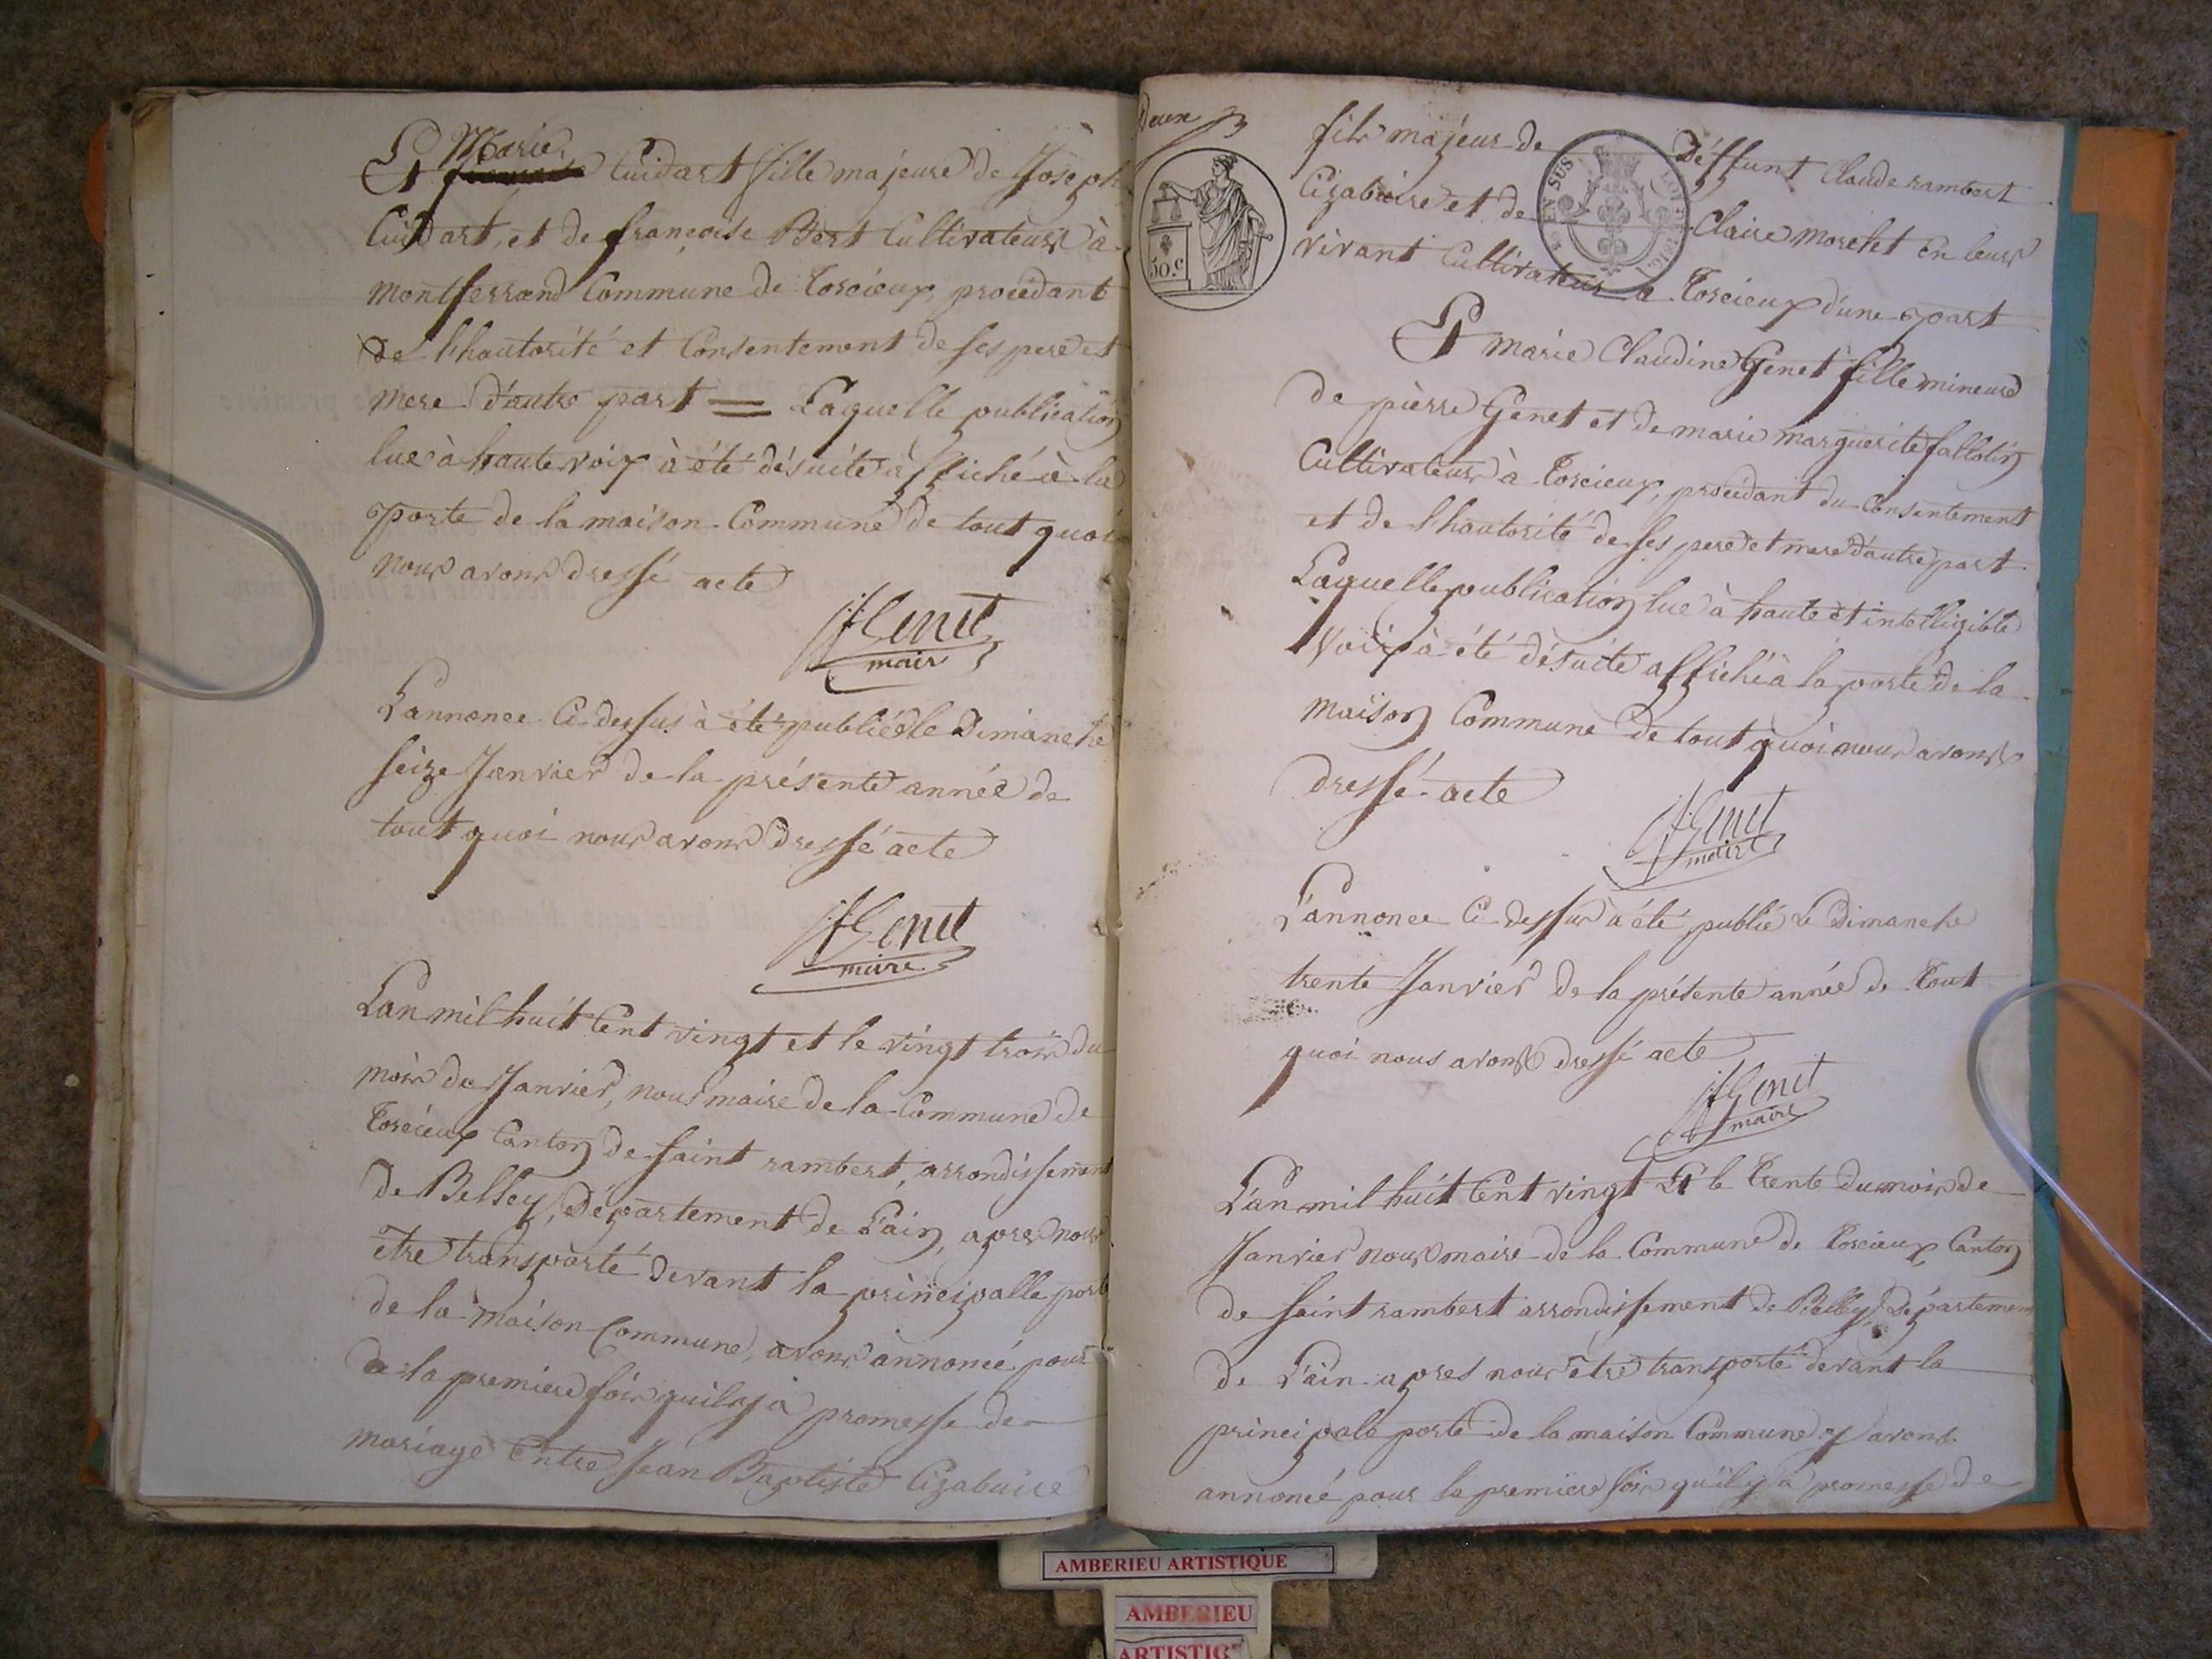 Marie
Et Cuidart fille majeure de Joseph
Cuidart, et de françoise Bert Cultivateurs à
montferrand Commune de Torcieux, procédant
de l'hautorité et Consentement de ses pere et
mere d'autre part = Laquelle publication
lue à haute voix à été désuite affiché à la
porte de la maison Commune de tout quoi
nous avons dressé acte
JfGenet
mair
L'annonce Ci dessus à été publié le Dimanche
seize Janvier de la présente année de
tout quoi nous avons dressé acte
JfGenet
maire
L'an mil huit Cent vingt et le vingt trois du
mois de Janvier, nous maire de la Commune de
Torcieux Canton de saint rambert, arrondissement
de Belley, Département de L'ain, apres nous
être transporté devant la principalle porte
de la maison Commune, avons annoncé pour
de la premiere fois quil y à promesse de
mariage Entre Jean Baptiste Cizabuire
Deux
50.c
EN SUS
fils majeur de Déffunt Claude rambert
Cizabuire et de Claire morelet En leurs
vivant Cultivateurs a Torcieux d'une part
Et marie Claudine Genet fille mineure
de pièrre Genet et de marie marguerite fallotin
Cultivateurs à Torcieux, procédant du Consentement
et de l'hautorité de ses pere et mere d'autre part.
Laquelle publication lue à haute et intelligible
Voix à été désuite affiché à la porte de la
maison Commune de tout quoi nous avons
dressé acte
JfGenet
maire
L'annonce Ci dessus à été publié Le Dimanche
trente Janvier de la présente année de Tout
quoi nous avons dressé acte
JfGenet
maire
L'an mil huit Cent vingt Et le Trente du mois de
Janvier nous maire de la Commune de Torcieux, Canton
de saint rambert arrondissement de Belley, Département
de L'ain apres nous être transporté devant la
principale porte de la maison Commune y avons
annoncé pour la premiere fois qu'il y à promesse de
AMBERIEU ARTISTIQUE
AMBERIEU
ARTISTIQ